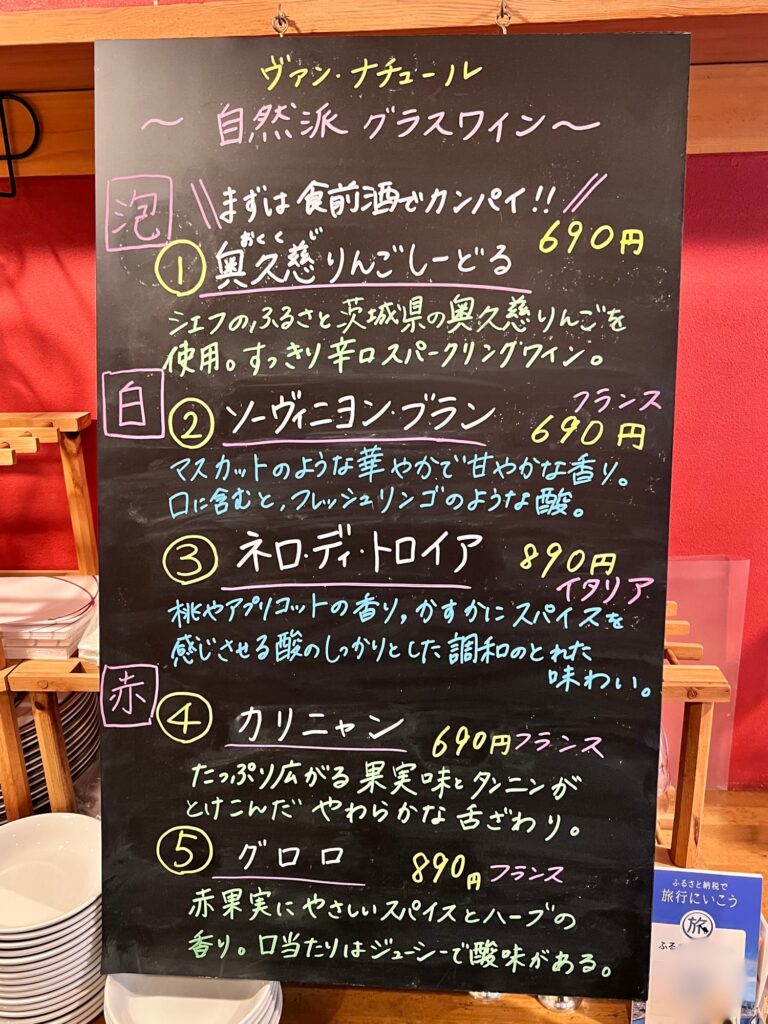 ヴァン・ナチュール
～ 自然派 グラスワイン～
泡
まずは食前酒でカンパイ!!
690円
おくくじ
① 奥久慈りんごしーどる
シェフのふるさと茨城県の奥久慈りんごを
使用。すっきり辛口スパークリングワイン。
白
② ソーヴィニヨン・ブラン
フランス
690円
マスカットのような華やかで甘やかな香り。
口に含むと、フレッシュリンゴのような酸。
③ ネロ・ディ・トロイア 890円
イタリア
桃やアプリコットの香り,かすかにスパイスを
感じさせる酸のしっかりとした調和のとれた
味わい。
赤
④ カリニャン 690円フランス
たっぷり広がる果実味とタンニンが
とけこんだ やわらかな舌ざわり。
⑤ グロロ 890円 フランス
赤果実にやさしいスパイスとハーブの
香り。口当たりはジューシーで酸味がある。
ふるさと納税で
旅行にいこう
旅